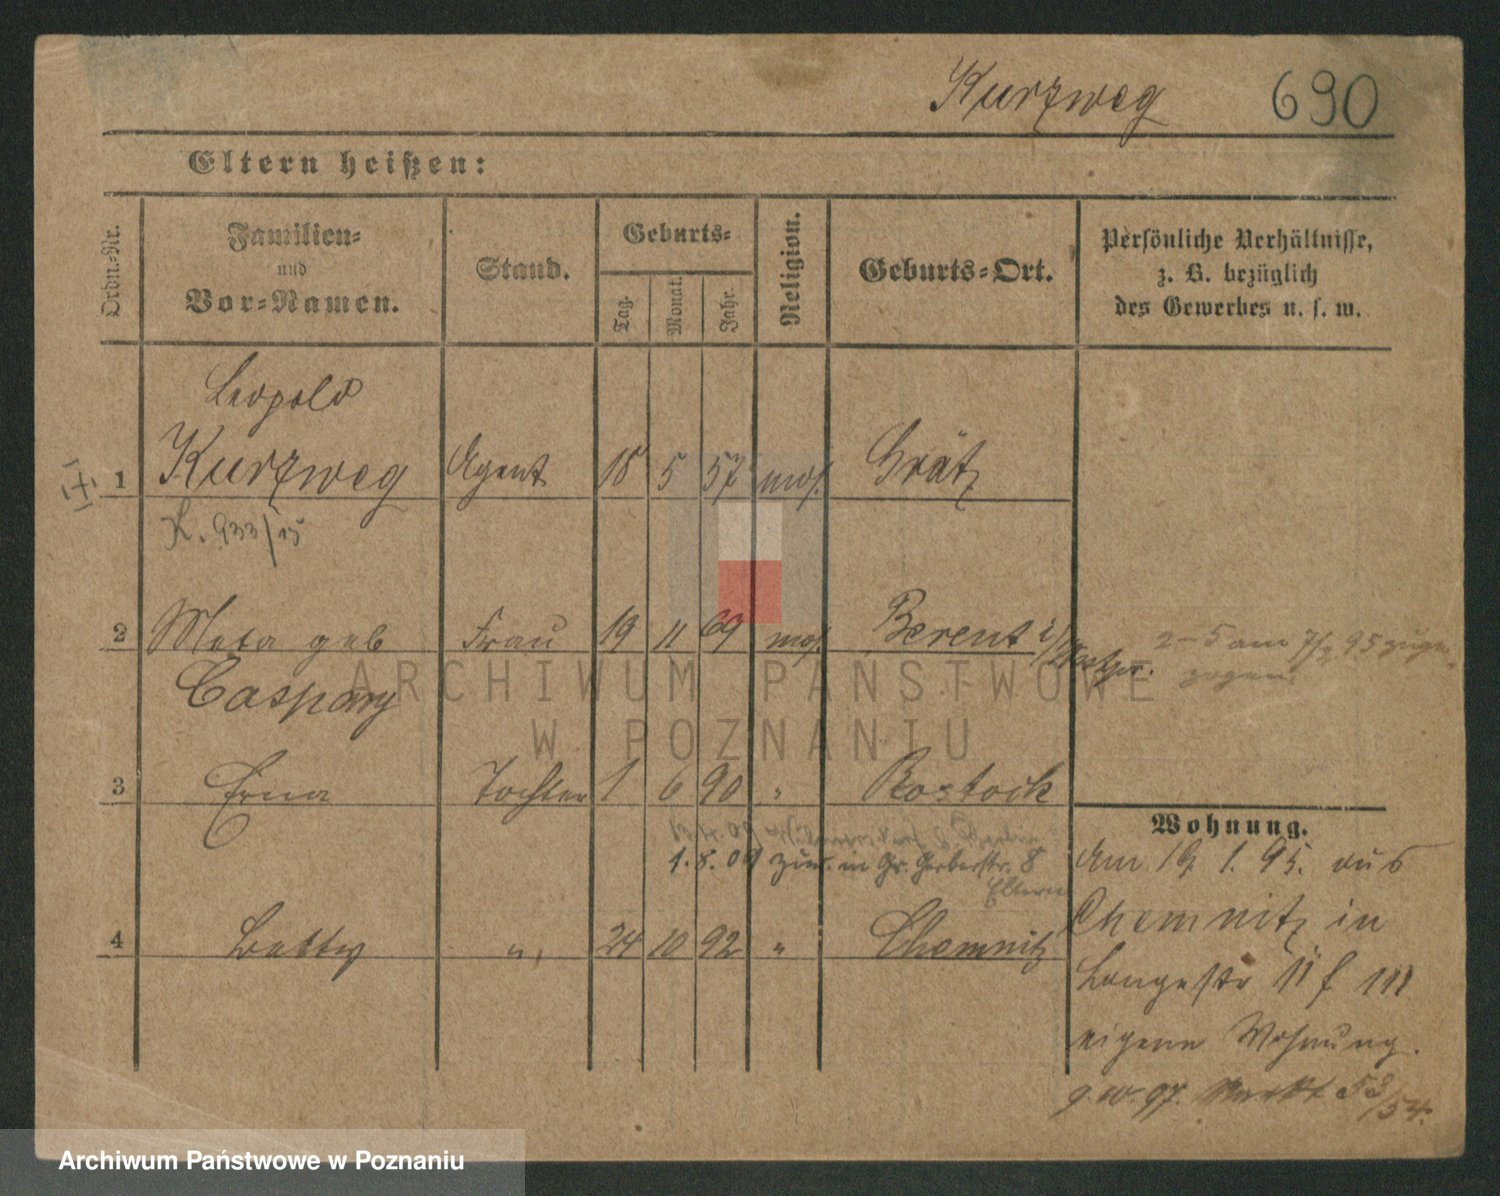 Kurzweg 690
Eltern heißen:
Ordn.-Nr.
Familien-
und
Vor-Namen.
Stand.
Geburts-
Tag.
Monat.
Jahr.
Religion.
Geburts-Ort.
Persönliche Verhältnisse,
z. B. bezüglich
des Gewerbes u. s. w.
Leopold
1 Kurzweg Agent 18 5 57 mos. Grätz
K. 933/15
2 Meta geb Frau 19 11 69 mos. Berent i/
Westpr. 2-5 am 7/2 95 zuge-
Caspary zogen
3 Erna Tochter 1 6 90 " Rostock
Wohnung.
1.8.09 zur. in Gr. Gerberstr. 8
Eltern
4 Betty " 24 10 92 " Chemnitz
Am 19 1. 95. aus
Chemnitz in
Langestr 11 f III
eigene Wohnung.
9.10.97. Markt 53/54.
ARCHIWUM PAŃSTWOWE
W POZNANIU
Archiwum Państwowe w Poznaniu